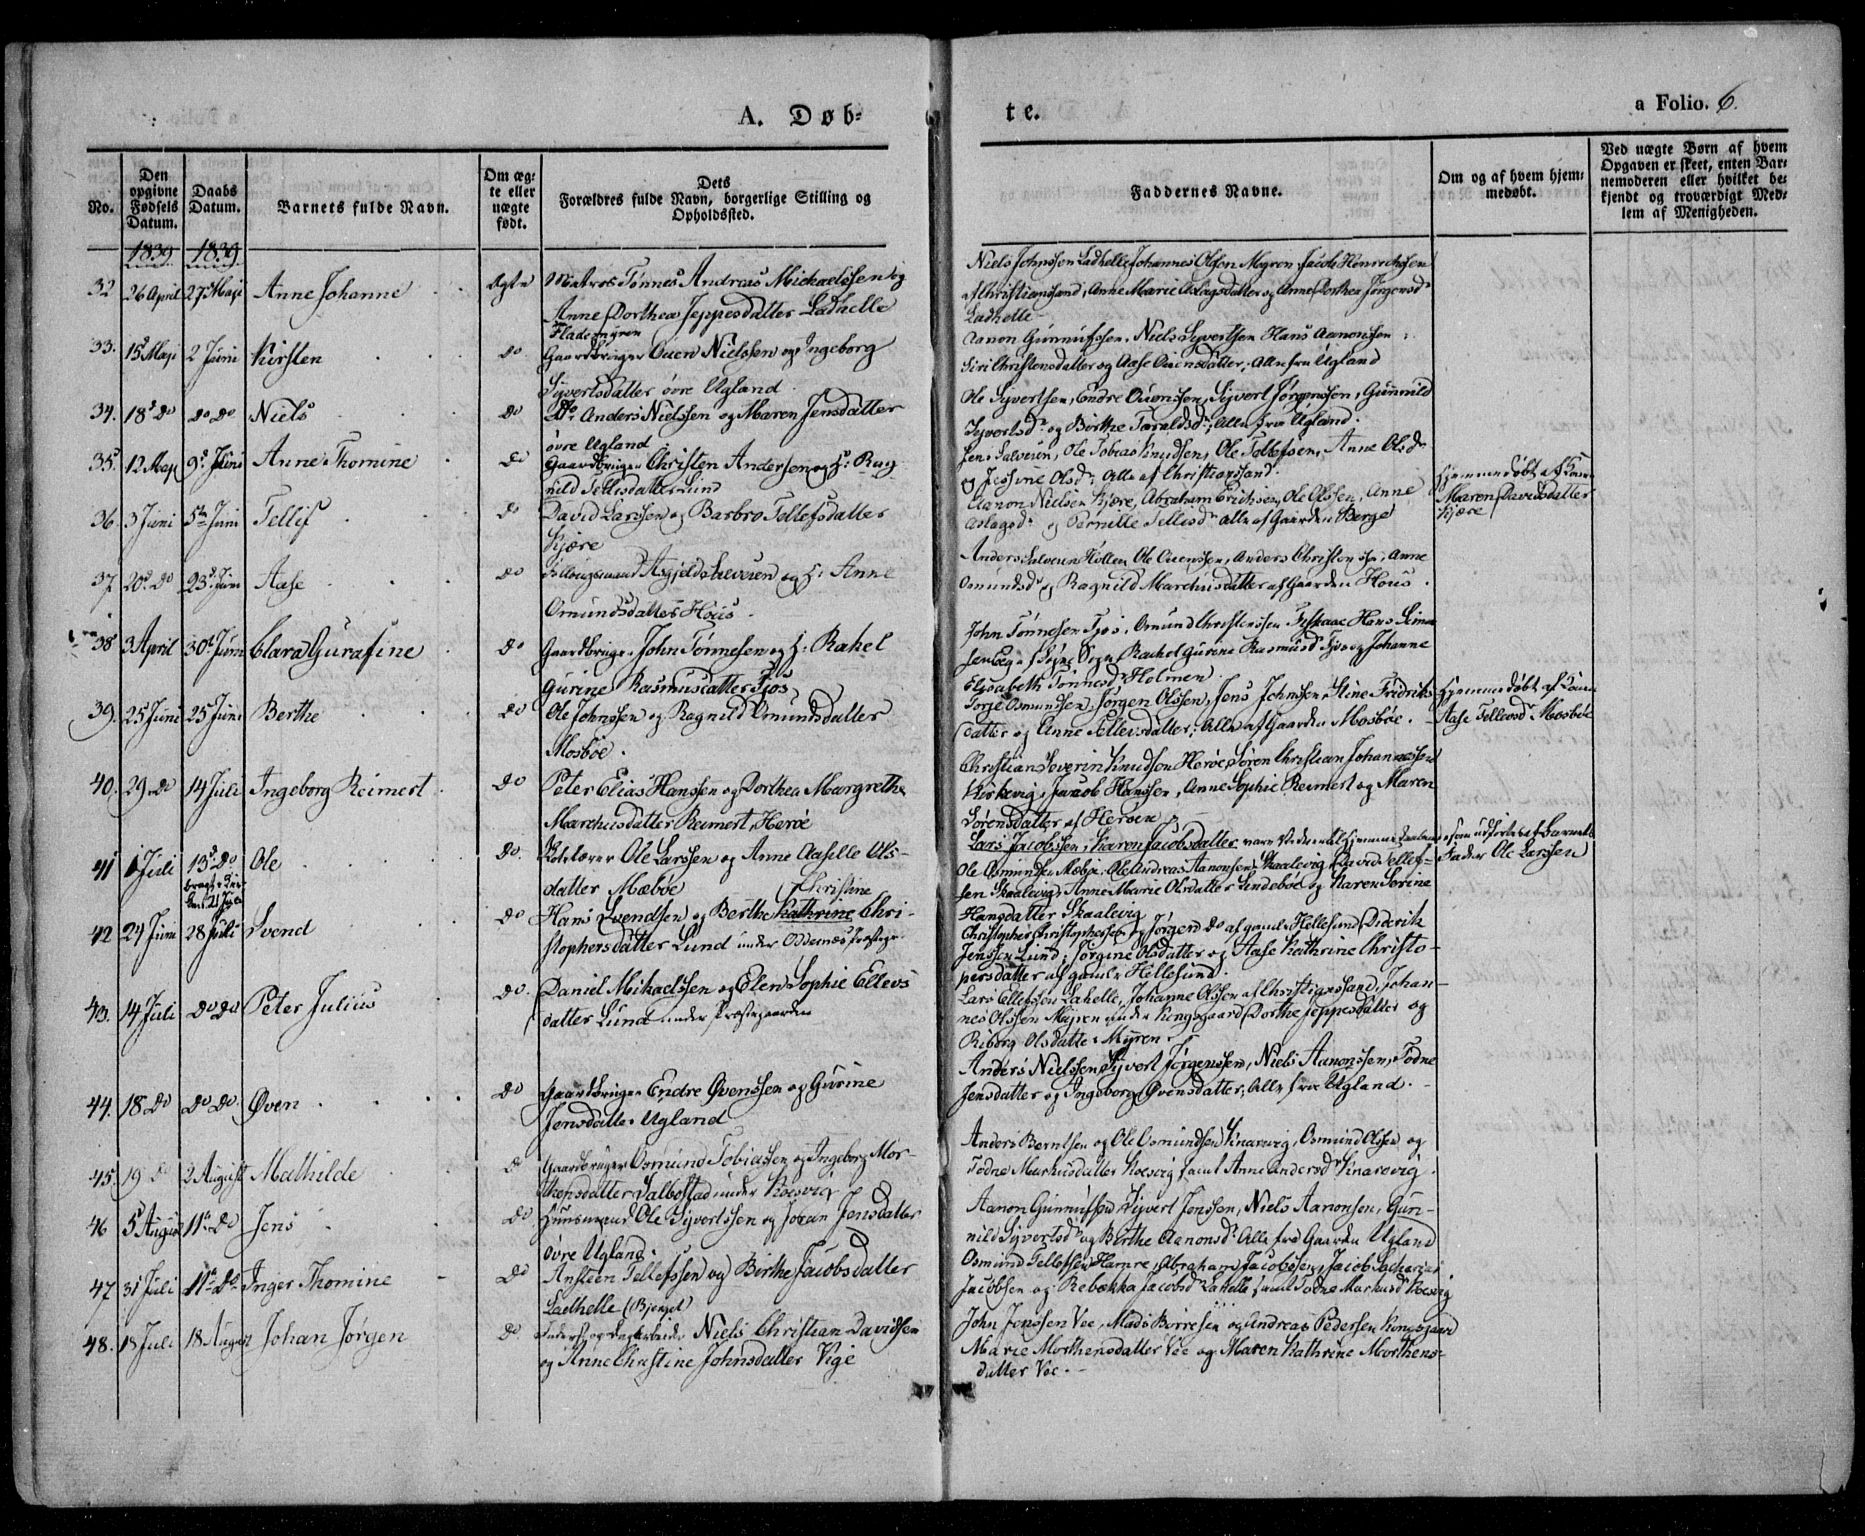 A. Døb-
te.
a Folio. 6.
No.
Den opgivne Fødsels Datum.
Daabs Datum.
Barnets fulde Navn.
Om ægte eller uægte født.
Dets
Forældres fulde Navn, borgerlige Stilling og Opholdssted.
Faddernes Navne.
Om og af hvem hjemmedøbt.
Ved uægte Børn af hvem Opgaven er skeet, enten Barnemoderen eller hvilket bekjendt og troværdigt Medlem af Menigheden.
1839 1839
32 26 April 27 Maji Anne Johanne Ægte Matros Tønnes Andreas Michaelssen og
Anne Dorthea Jeppesdatter Ladhelle
Niels Johnssen Ladhelle Johannes Olssen Myren, Jacob Henrichsen
af Christiansand, Anne Marie Aslagsdatter og Anne Dorthea Jørgensdr
Ladhelle
33. 15 Maji 2 Juni Kirsten do Gaardbruger Ouen Nielssen og Ingeborg
Syvertsdatter øvre Ugland
Aanon Gunnufssen, Niels Syvertsen Hans Aanonssen
Siri Christensdatter og Aase Ouensdatter, Alle fra Ugland
34. 18 do do do Niels do do Anders Nielssen og Maren Jensdatter
øvre Ugland
Ole Syvertsen, Endre Ouenssen, Syvert Jørgenssen, Gunnild
Syvertsdr og Berthe Taraldsdr, Alle fra Ugland.
35 12 Maji 9 Juni Anne Thomine do Gaardbruger Christen Andersen og H. Rag-
nild Tellisdatter Lund
Jens Salvesen, Ole Tobias Knudsen, Ole Tellefsen, Anne Olsdr
og Jessine Olsdr Alle af Christianssand.
36 3 Juni 5te Juni Tellif do David Larssen og Barbro Tellefsdatter
Kjære
Aanon Nielsen Kjære, Abraham Erichsen, Ole Olssen, Anne
Aslagsdr og Pernille Tellisdr Alle af Gaarden Berge
Hjemmedøbt af
Maren Davidsdatter
Kjære
37 20 do 23 Juni Aase do Asgjeld Salvesen og H. Anne
Omundsdatter Hous
Anders Salvesen Ole Ouenssen, Anders Christenssen, Anne
Omundsdr og Ragnild Marchusdatter af Gaarden Hous.
38 3 April 30 Juni Clara Gurafine do Gaardbruger John Tønnesen og H. Rahel
Gurine Rasmusdatter Fjos
John Tønnesen Fjos, Omund Christenssen Hans Simon-
Søgne Sogn, Rachel Gurine Rasmusd Fjos og Johanne
Elisabeth Tønnesdr Holmen
39. 25 Juni 25 Juni Berthe do Ole Johnssen og Ragnild Omundsdatter
Mosbøe.
Torje Osmundsen, Jørgen Olssen, Jens Johnssen, Stine Fridriks-
datter og Anne Tellevsdatter, Alle af Gaarden Mosbøe.
Hjemmedøbt af
Aase Tellevsdr Mosbøe
40. 29 do 14 Juli Ingeborg Reimert do Peter Elias Hanssen og Dorthea Margrethe
Marchusdatter Reimert, Herøe
Christian Severin Knudsen Herøe, Søren Christian Johannessen
Kirkevig, Jacob Hanssen, Anne Sophie Reimert og Maren
Sørensdatter af Herøen
41 1 Juli 13 do Ole do Ole Larssen og Anne Aaselle Ols-
datter Mæbøe
Lars Jacobssen, Karen Jacobsdatter som udførtes af Barnets
Fader Ole Larssen
Ole Osmundsen Mæbøe, Ole Andreas Aanonsen Skaalevig, David Tellef-
sen Skaalevig, Anne Marie Olsdatter og Karen Serine
Hansdatter Skaalevig
42 24 Juni 28 Juli Svend do Hans Svendsen og Berthe Kathrine Christine Chri-
stophersdatter Lund under Oddernes
Christopher Christophersen og Jørgen do af gamle Hellesund, Diderik
Jenssen Lund, Jørgine Olsdatter og Aase Kathrine Christo-
persdatter af gamle Hellesund.
43. 14 Juli do do Peter Julius do Daniel Mikaelssen og Elen Sophie Ellevs
datter Lund under Præstegaarden
Lars Ellefsen Lahelle, Johanne Olssen af Christianssand, Johan-
nes Olssen Myren under Kongsgaard, Dorthe Jeppesdatter og
Riborg Olsdatter Myren.
44. 18 do do do Øven do Gaardbruger Endre Øvenssen og Gurine
Jensdatter Ugland
Anders Nielssen, Syvert Jørgenssen, Niels Aanonssen, Todne
Jensdatter og Ingeborg Øvensdatter, Alle fra Ugland.
45. 19 do 2 August Mathilde do Gaardbruger Osmund Tobiassen og Ingeborg Mor-
thensdatter Salbostad under Koesvig
Anders Berntsen og Ole Osmundsen Knarevig, Osmund Olssen og
Todne Markusdatter Koesvig samt Anne Andersdr Knarevig
46 5 August 11 do Jens do Huusmand Ole Syvertssen og Johan Jensdatter
øvre Ugland.
Aanon Gunnufsen Syvert Jenssen, Niels Aanonsen, Gun-
nild Syvertsdr og Birthe Aanonsdr Alle fra Gaarden Ugland
47 31 Juli 11 do Inger Thomine do Ansteen Tellefssen og Birthe Jacobsdatter
Ladhelle (Bjenget)
Osmund Tellefsen Hamre, Abraham Jacobssen, Jacob Zacharias
Jacobsen og Rebekka Jacobsdr Lahelle samt Todne Markusdr Koesvig
48. 18 Juli 18 August Johan Jørgen do Niels Christian Davidsen
og Anne Christine Johnsdatter Vige
John Jenssen Vee, Mads Børresen og Andreas Pedersen Kongsgaard
Marie Morthensdatter Vee og Maren Kathrine Morthens-
datter Vee.